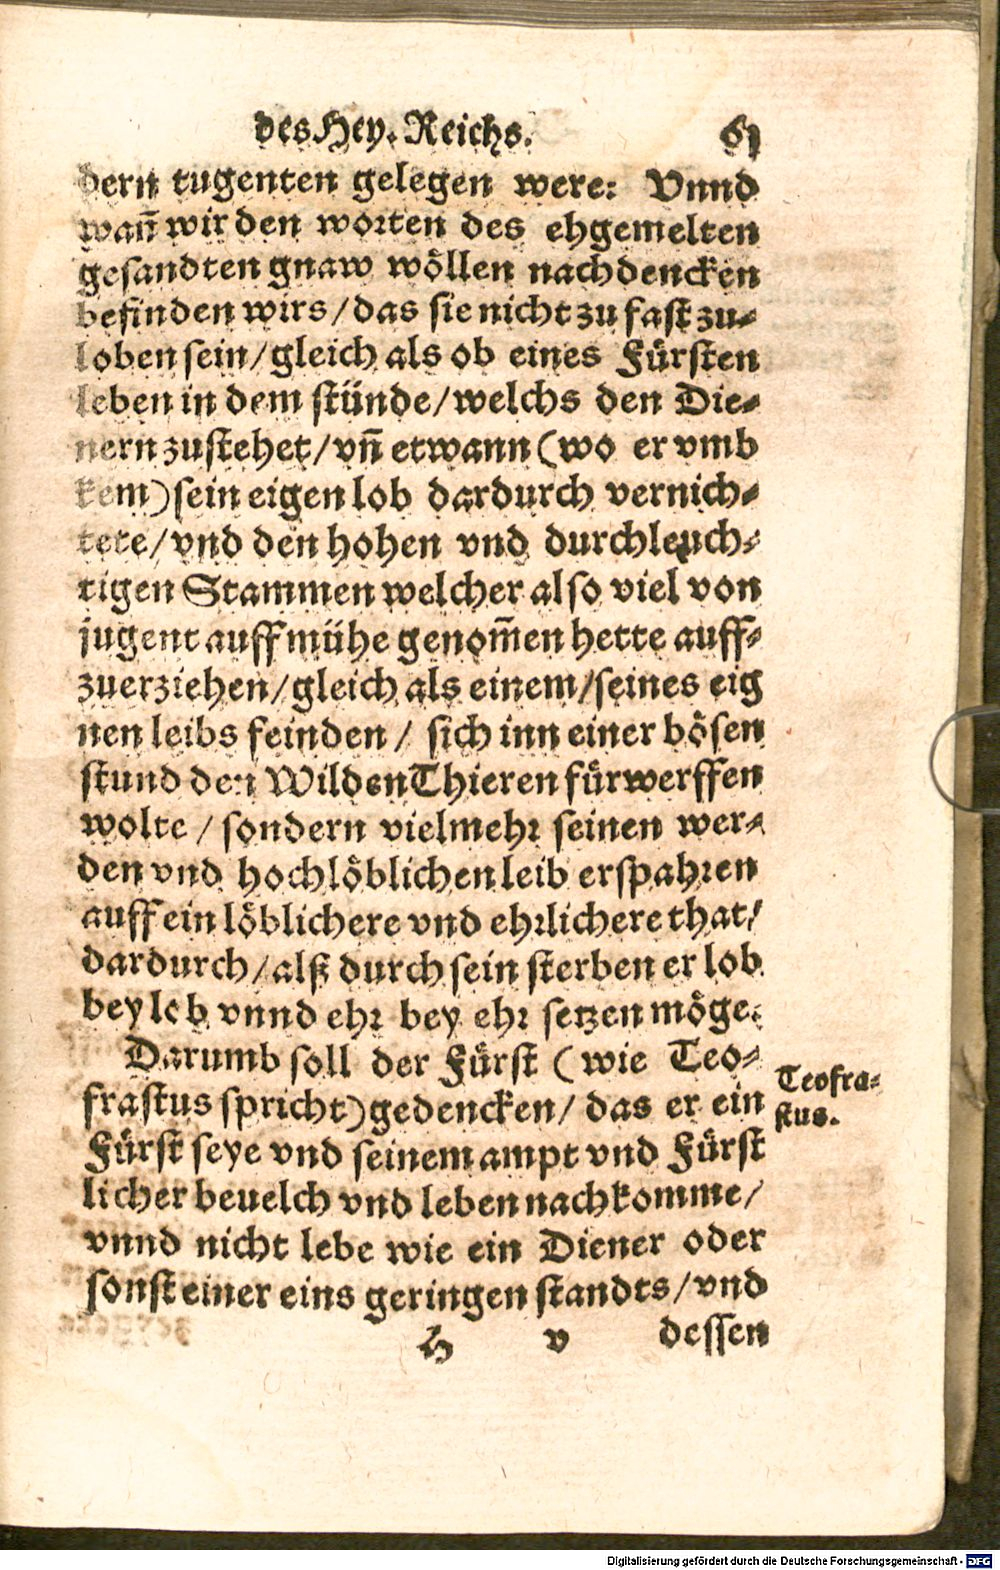 des Hey. Reichs. 61
dern tugenten gelegen were: Vnnd
wañ wir den worten des ehgemelten
gesandten gnaw wöllen nachdencken
befinden wirs/das sie nicht zu fast zu-
loben sein/gleich als ob eines Fürsten
leben in dem stünde/welchs den Die-
nern zustehet/vñ etwann (wo er vmb
kem) sein eigen lob dardurch vernich-
tete/vnd den hohen vnd durchleuch-
tigen Stammen welcher also viel von
jugent auff mühe genom̃en hette auff-
zuerziehen/gleich als einem/seines eig
nen leibs feinden/ sich inn einer bösen
stund den Wilden Thieren fürwerffen
wolte/ sondern vielmehr seinen wer-
den vnd hochlöblichen leib erspahren
auff ein löblichere vnd ehrlichere that/
dardurch/alß durch sein sterben er lob
bey lob vnnd ehr bey ehr setzen möge.
Darumb soll der Fürst (wie Teo-
frastus spricht) gedencken/ das er ein
Fürst seye vnd seinem ampt vnd Fürst
licher beuelch vnd leben nachkomme/
vnnd nicht lebe wie ein Diener oder
sonst einer eins geringen standts/vnd
H v dessen
Teofra-
stus.
Digitalisierung gefördert durch die Deutsche Forschungsgemeinschaft - DFG